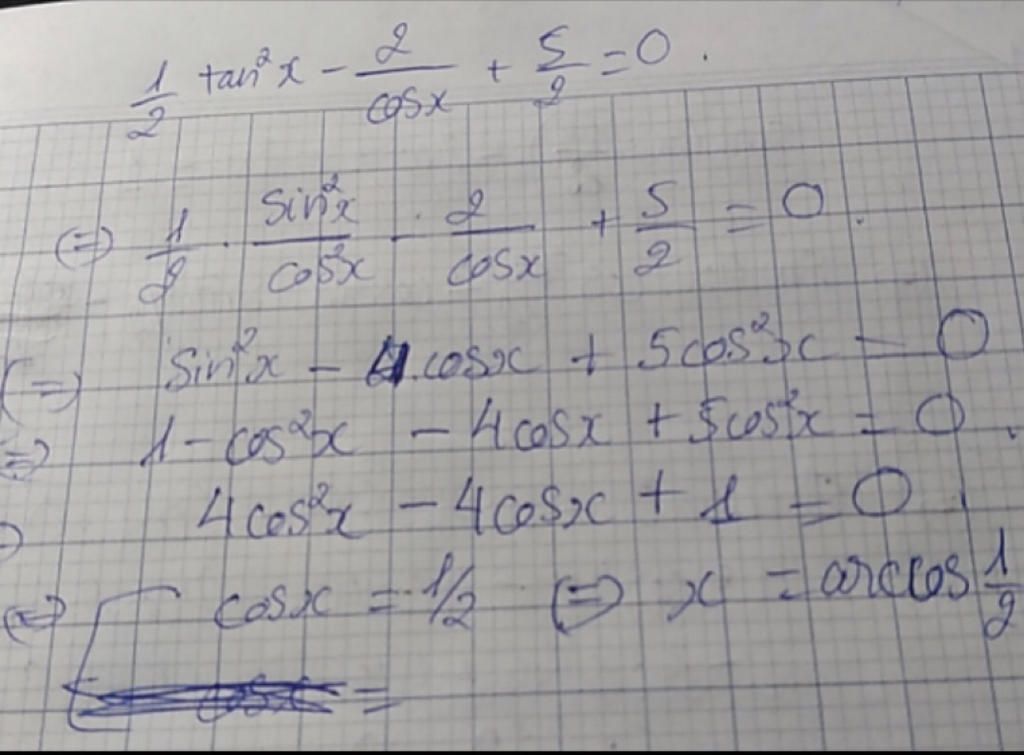 1/2 tan²x - 2/cosx + 5/2 = 0.
(=) 1/2 . sin²x/cos²x - 2/cosx + 5/2 = 0.
(=) sin²x - 4cosx + 5cos²x = 0
(=) 1 - cos²x - 4cosx + 5cos²x = 0.
4cos²x - 4cosx + 1 = 0
(=) [ cosx = 1/2 (=) x = arccos 1/2
cosx =